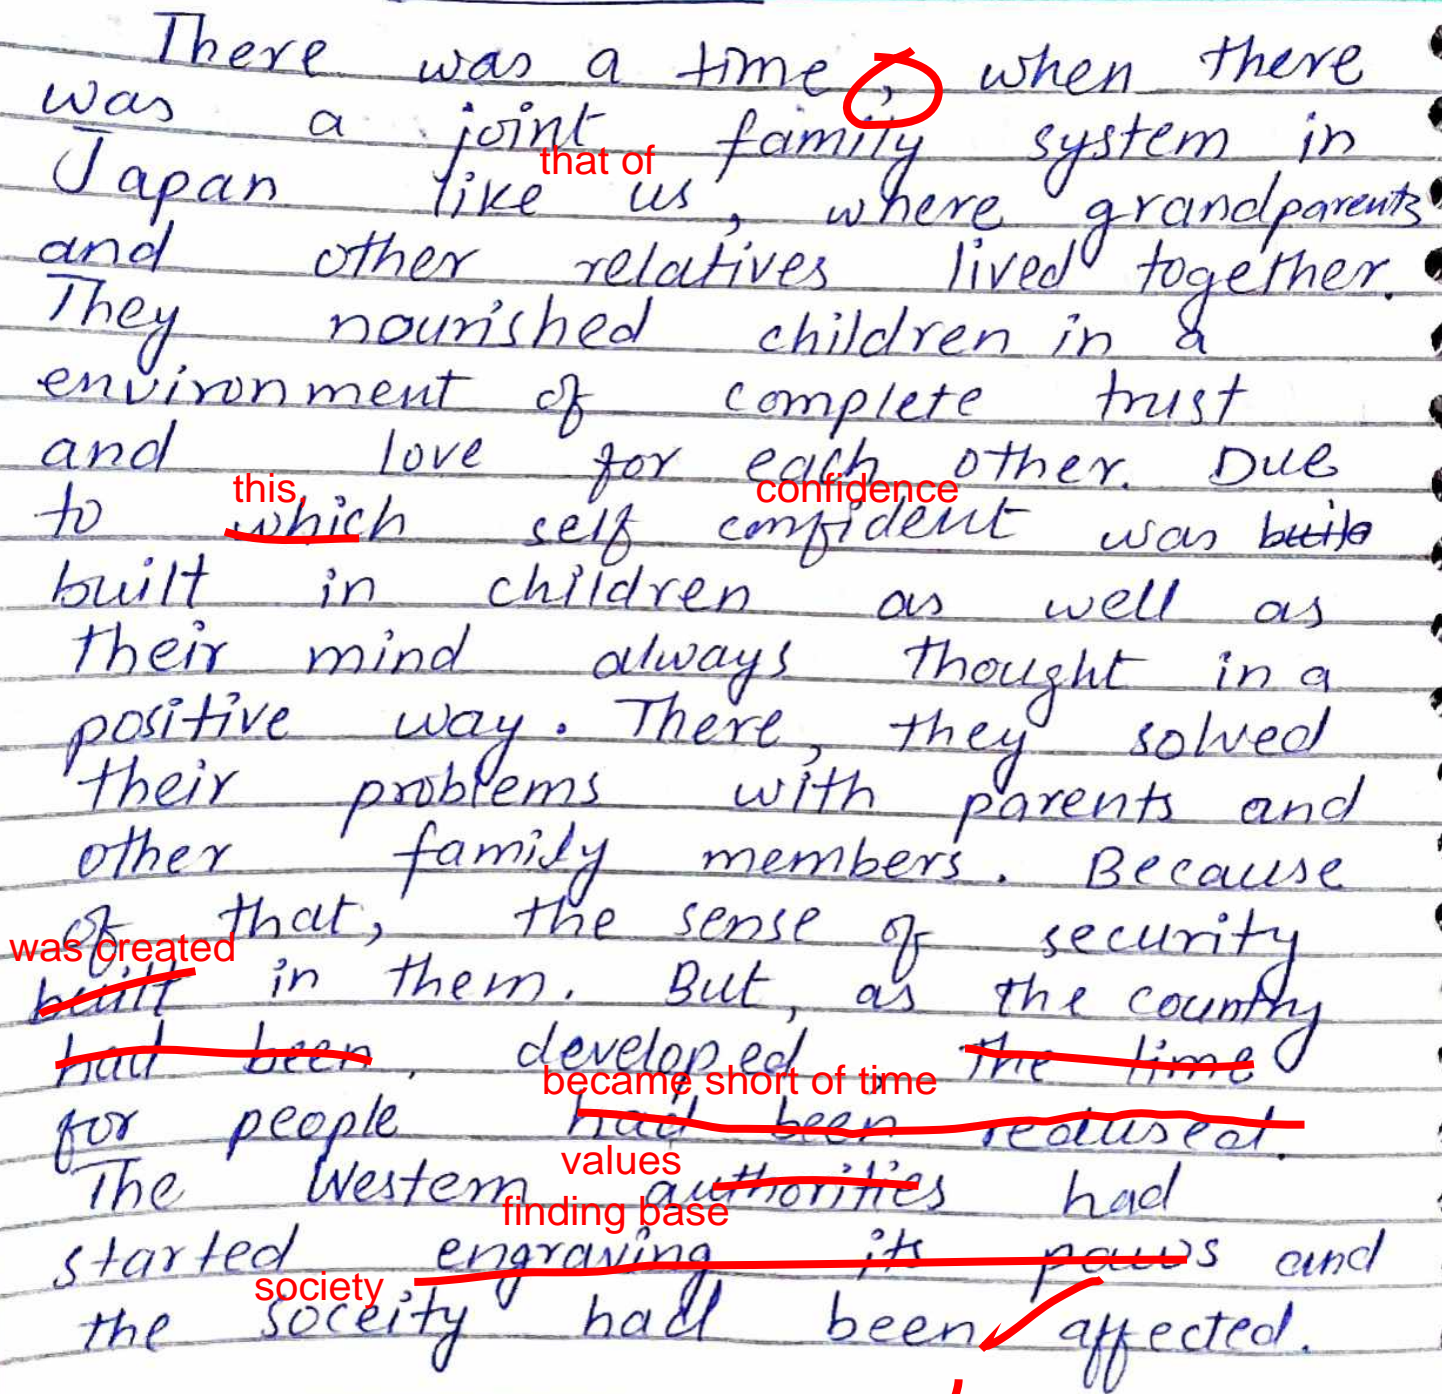 There was a time, when there
was a joint family system in
that of
Japan like us, where grandparents
and other relatives lived together.
They nourished children in a
environment of complete trust
and love for each other. Due
this, confidence
to which self confident was built
built in children as well as
their mind always thought in a
positive way. There, they solved
their problems with parents and
other family members. Because
of that, the sense of security
was created
built in them. But, as the country
had been developed, the time
became short of time
for people had been redused.
values
The Western authorities had
finding base
started engraving its paws and
society
the soceity had been affected.